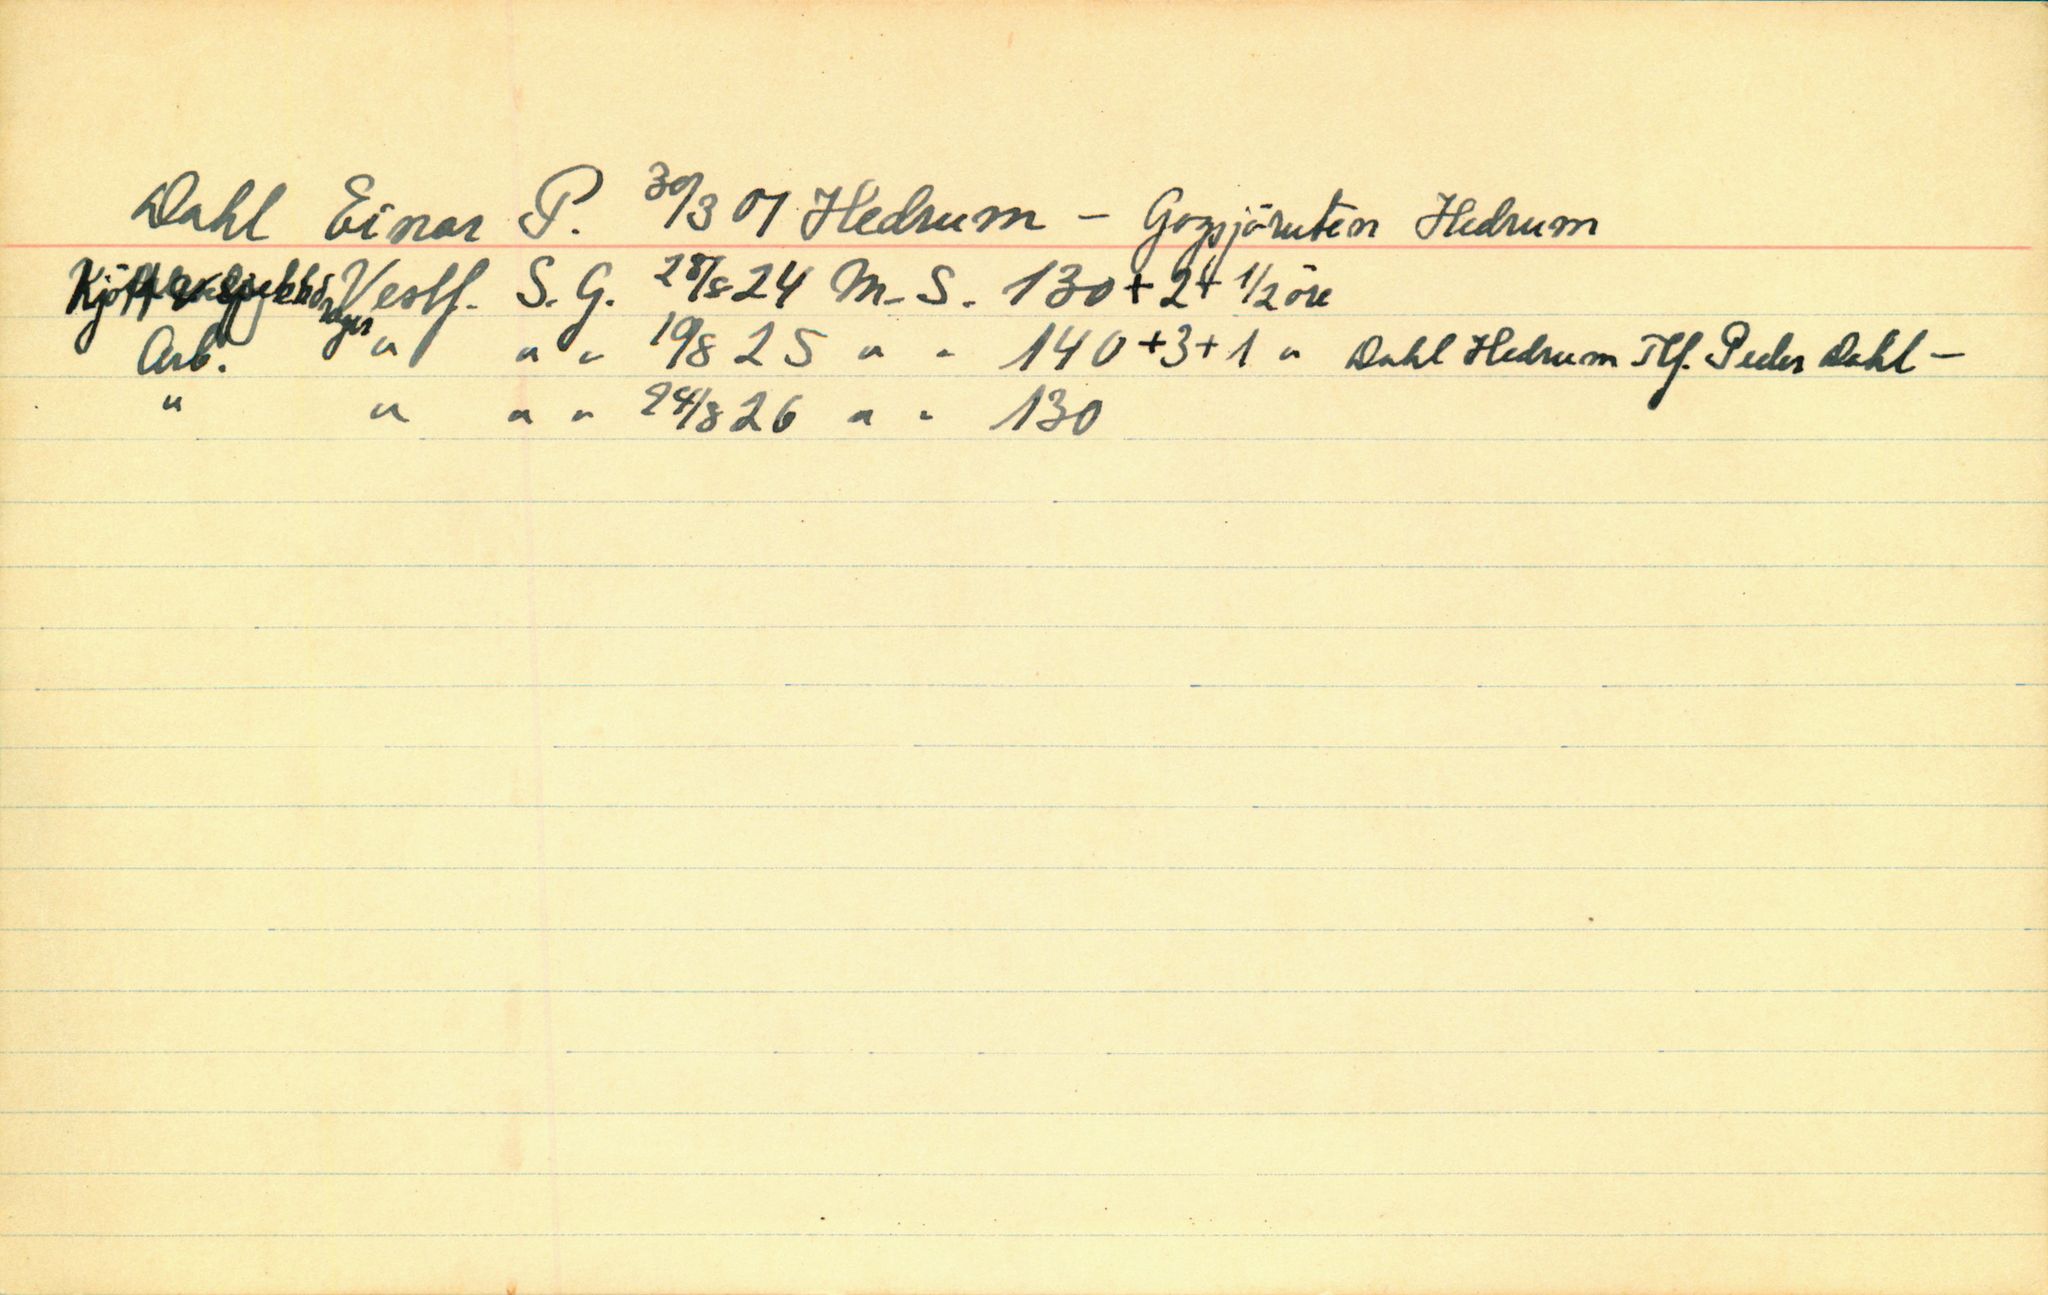 Dahl Einar P. 30/3 01 Hedrum - Gogsjöruten Hedrum
Kjött & Spekkdrager Vestf. S. G. 28/8 24 M-S. 130+2+1/2 öre
Arb. " " " 19/8 25 " " 140+3+1 " Dahl Hedrum Tlf. Peder Dahl -
" " " " 24/8 26 " " 130